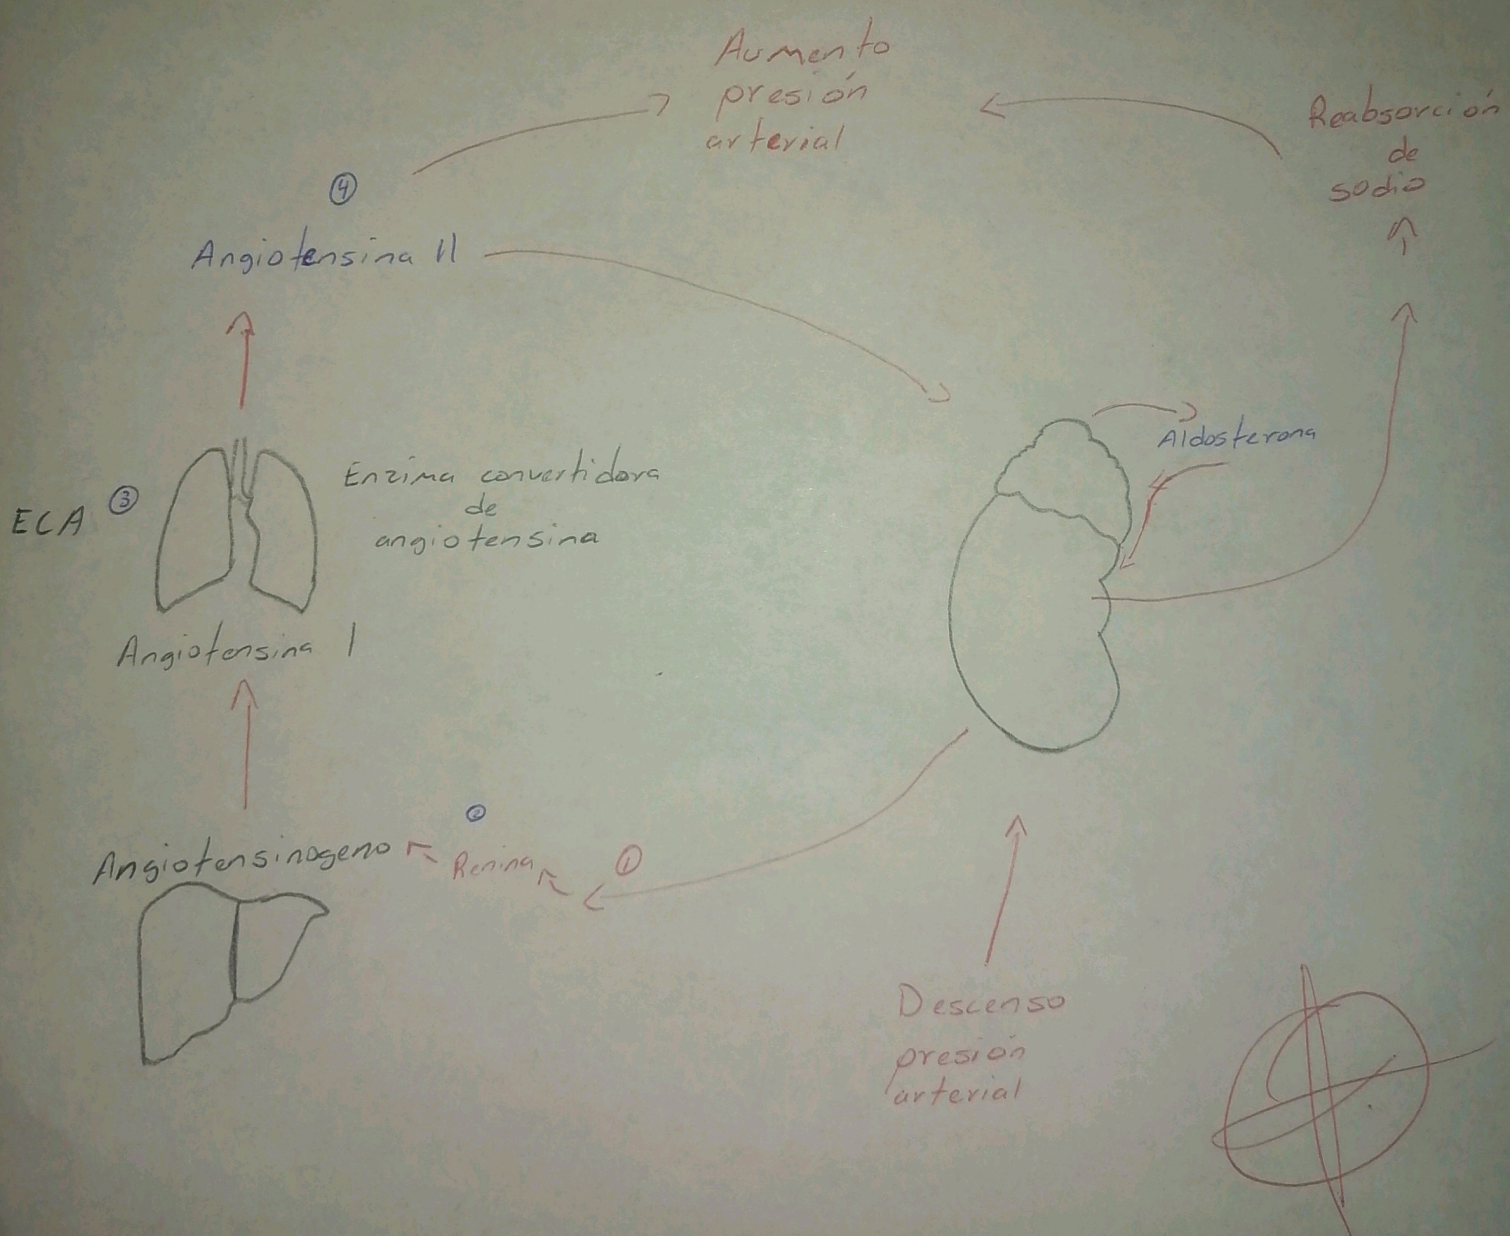 Aumento
presión
arterial
Reabsorción
de
sodio
4
Angiotensina II
Aldosterona
ECA
3
Enzima convertidora
de
angiotensina
Angiotensina I
2
1
Angiotensinogeno
Renina
Descenso
presión
arterial